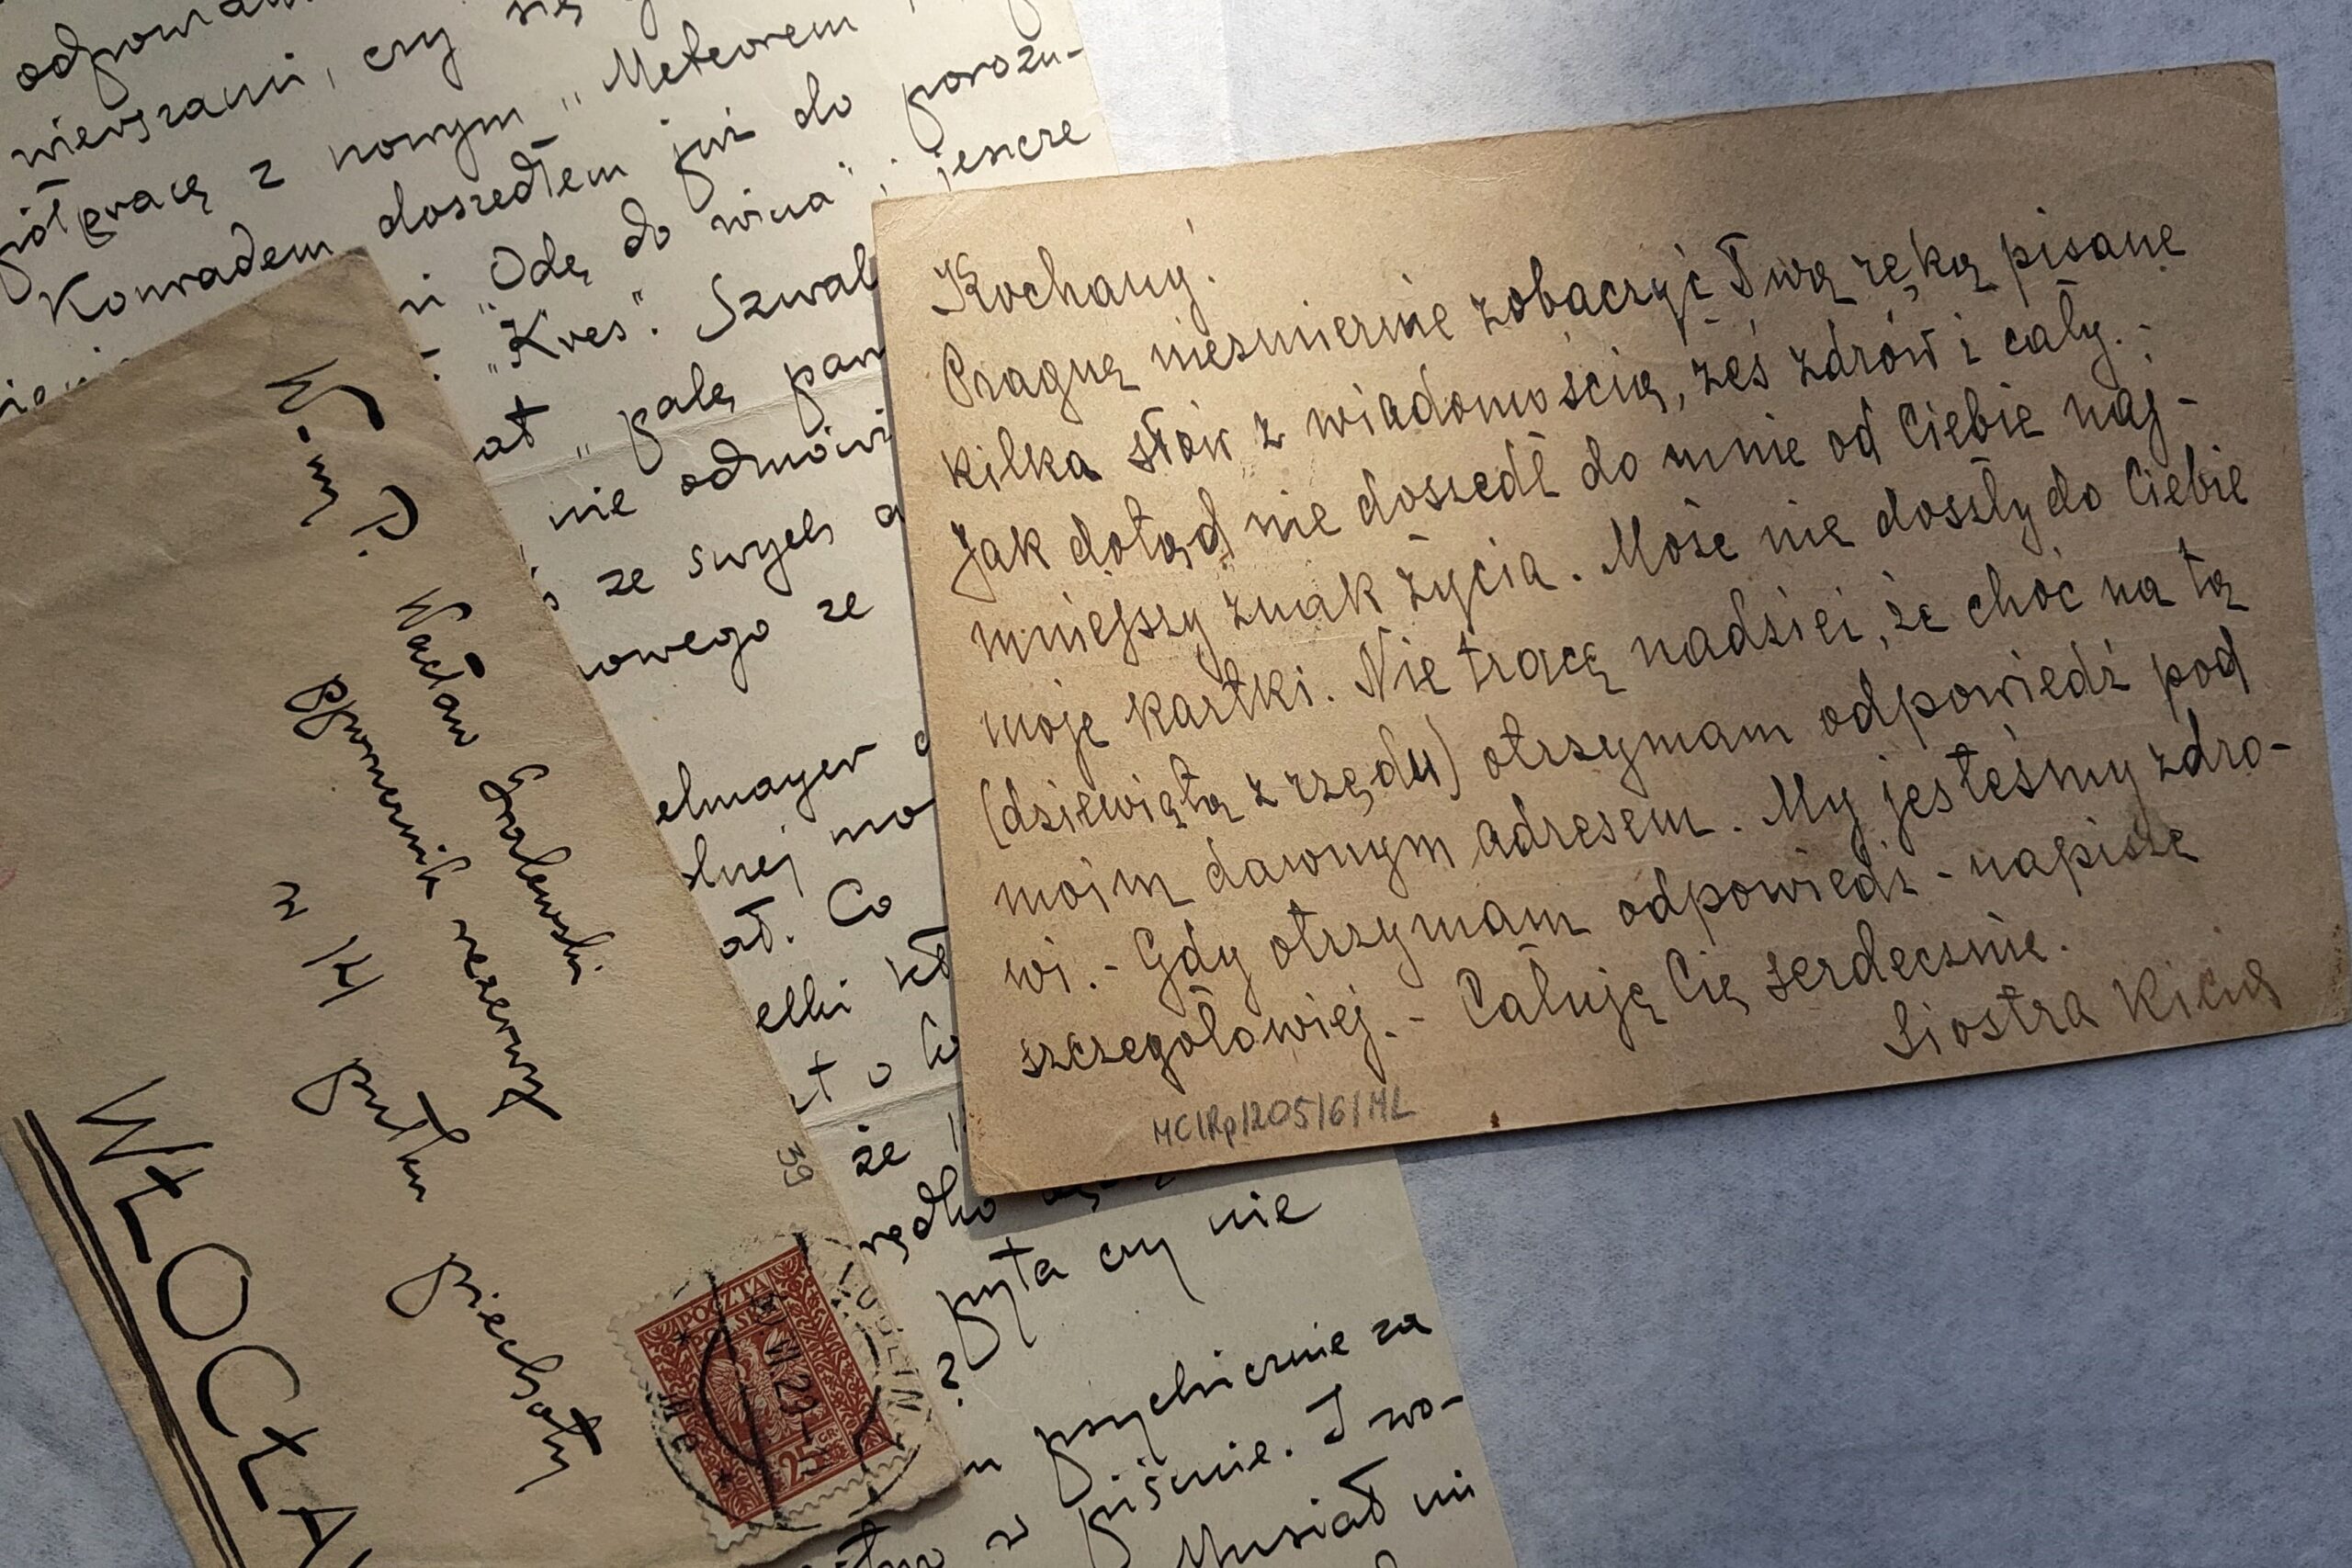 odpowia
wierszami, czy się
z nowym „Meteorem
Konradem doszedłem już do porozu-
„Odę do wina" i jeszcze
„Kres". Szwal
at „palę pam
nie odmówi
ze swych
owego ze
elmayer
lnej mo
at. Co
elki kt
że
pyta czy nie
psychicznie za
piśmie. I wo-
w Musiał mi
W-ny P. Wacław Gralewski
pprucznik rezerwy
w 14 pułku piechoty
WŁOCŁA
39
POCZTA
POLSKA
VI 29
25 GR
LUBLIN
Kochany!
Pragnę niezmiernie zobaczyć Twą ręką pisane
kilka słów z wiadomością, żeś zdrów i cały. -
Jak dotąd nie doszedł do mnie od Ciebie naj-
mniejszy znak życia. Może nie doszły do Ciebie
moje kartki. Nie tracę nadziei, że choć na tą
(dziewiątą z rzędu) otrzymam odpowiedź pod
moim dawnym adresem. My jesteśmy zdro-
wi. - Gdy otrzymam odpowiedź - napiszę
szczegółowiej. - Całuję Cię serdecznie.
Siostra Kicia
MC/Rp/205/6/ML